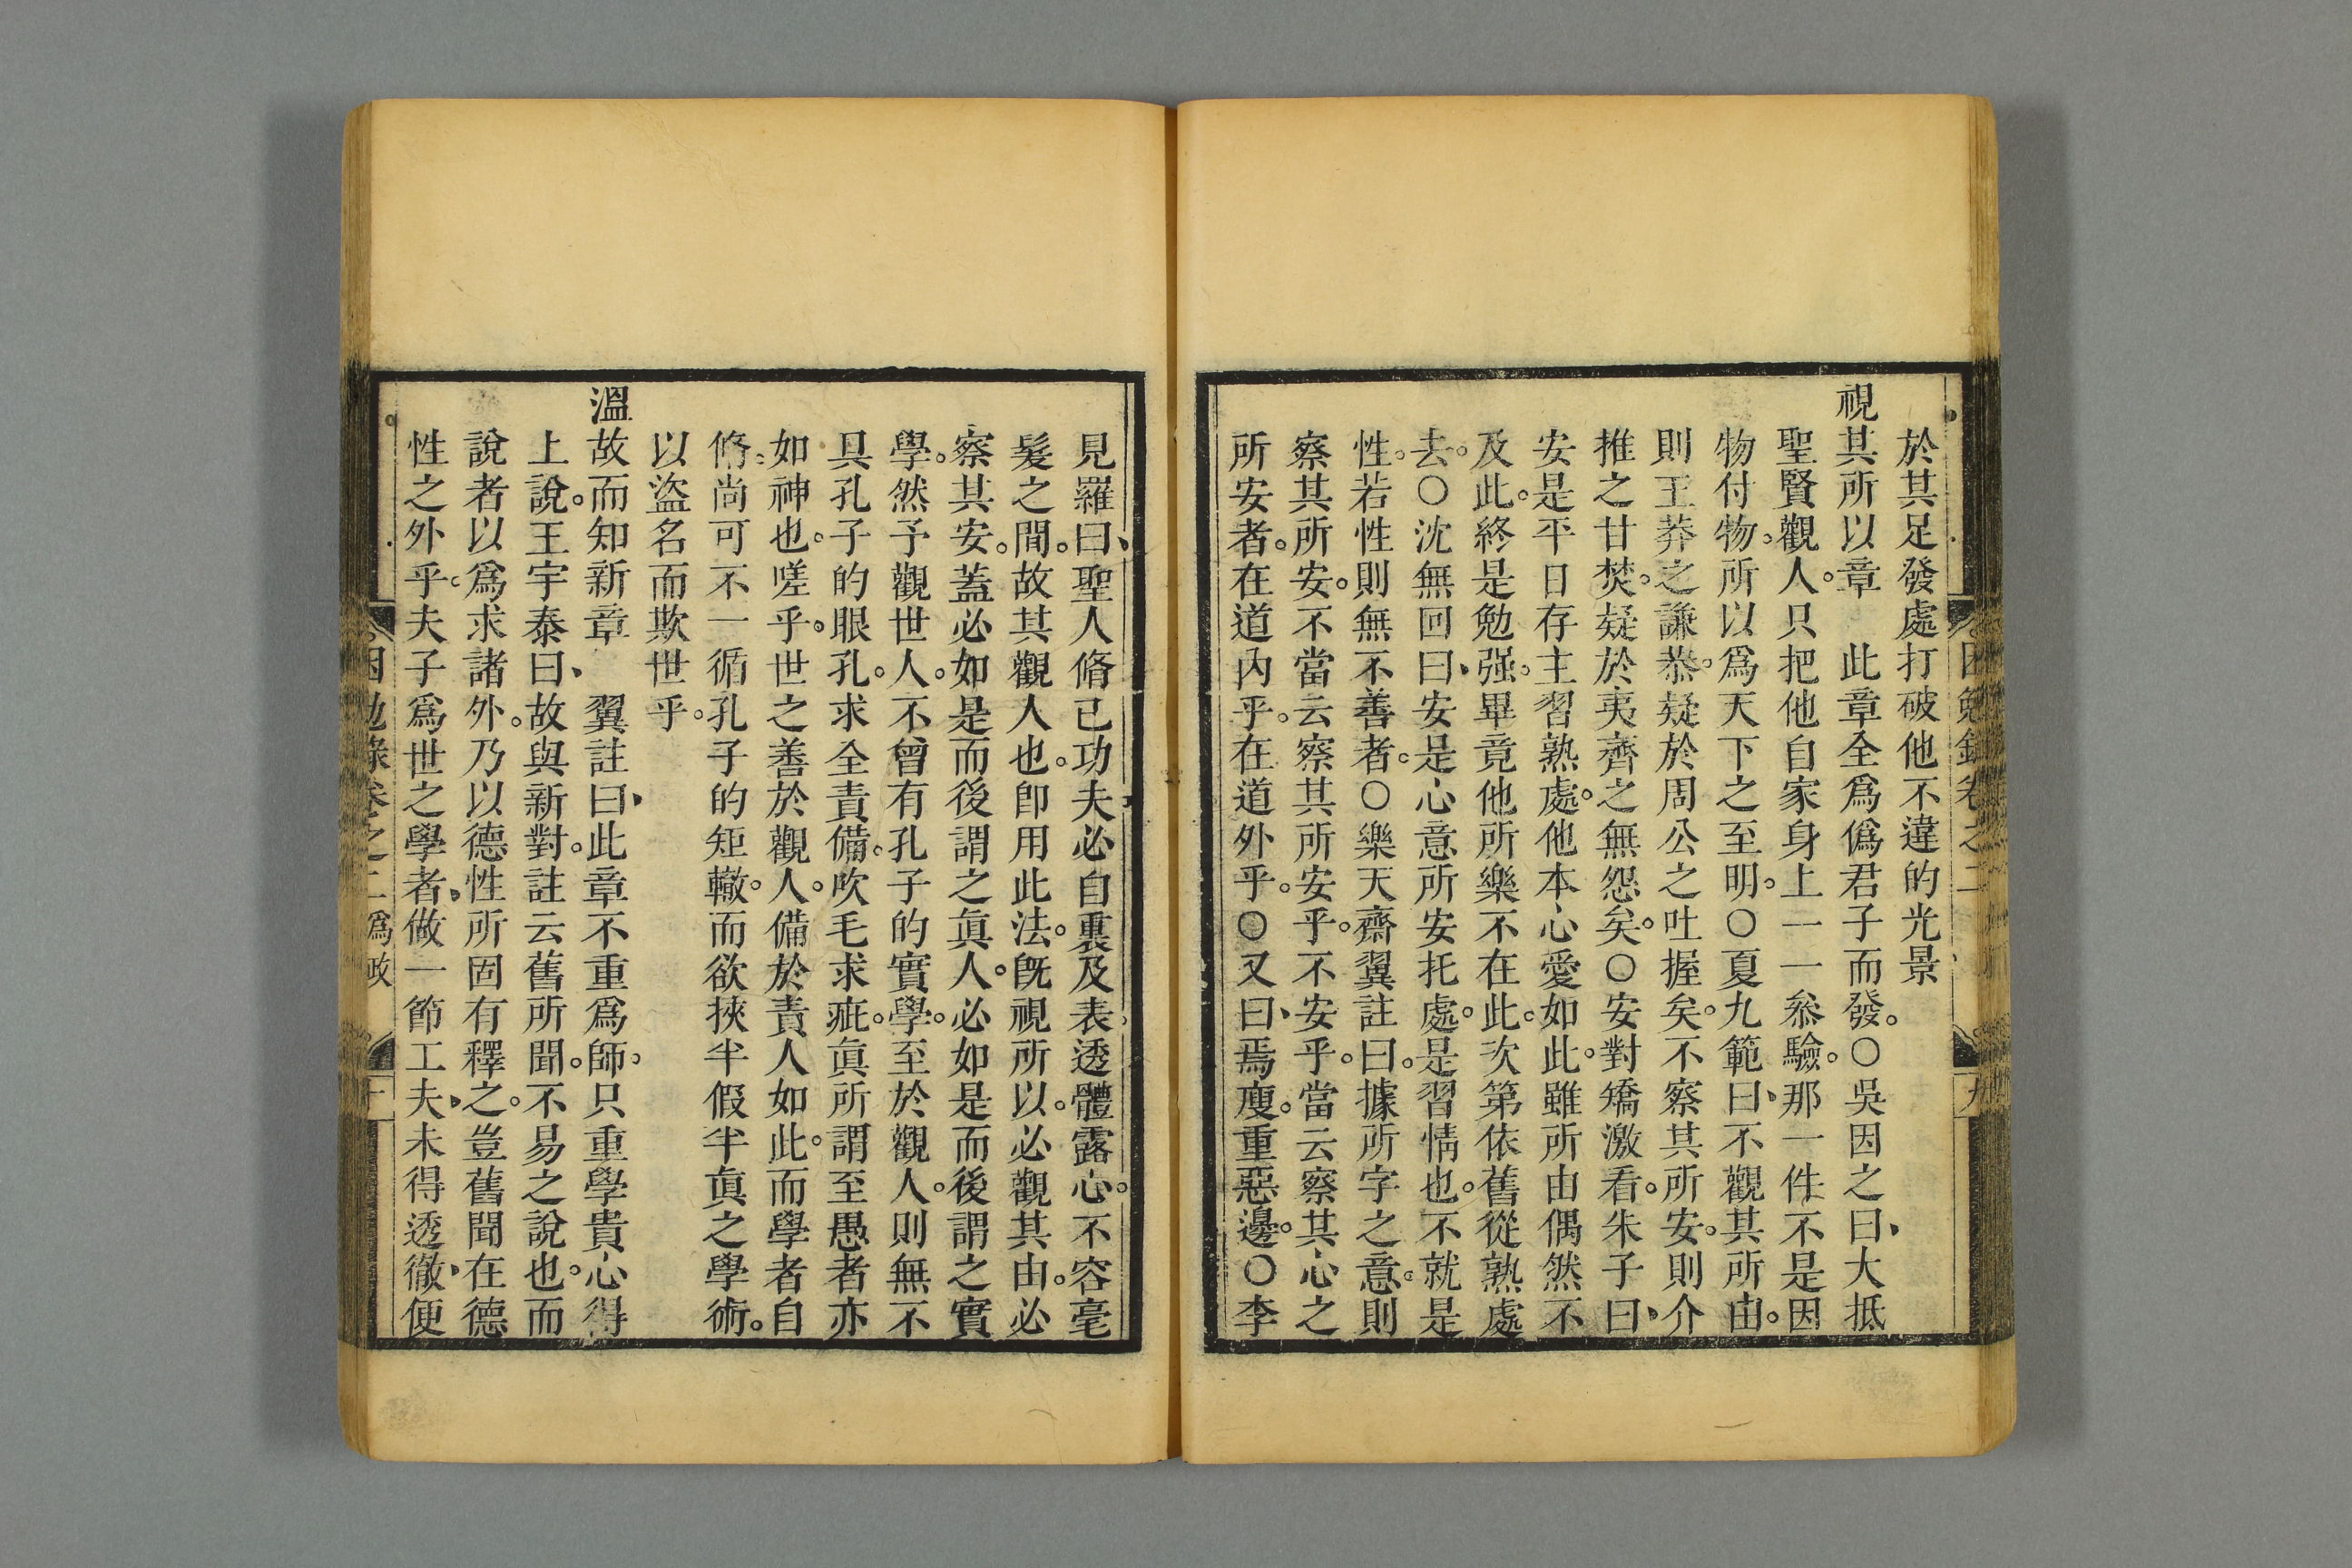 於其足發處打破他不違的光景
視其所以章　此章全爲僞君子而發。○吳因之曰、大抵
聖賢觀人。只把他自家身上一一叅驗。那一件不是因
物付物。所以爲天下之至明。○夏九範曰、不觀其所由。
則王莽之謙恭。疑於周公之吐握矣。不察其所安。則介
推之甘焚。疑於夷齊之無怨矣。○安對矯激看。朱子曰、
安是平日存主習熟處。他本心愛如此。雖所由偶然不
及此。終是勉强。畢竟他所樂不在此。次第依舊從熟處
去。○沈無回曰、安是心意所安托處。是習情也。不就是
性。若性則無不善者。○樂天齋翼註曰。據所字之意。則
察其所安。不當云察其所安乎。不安乎。當云察其心之
所安者。在道內乎。在道外乎。○又曰、焉廋。重惡邊。○李
困勉錄卷之二
九
見羅曰、聖人脩己功夫、必自裏及表。透體露心。不容毫
髮之間。故其觀人也。卽用此法。旣視所以。必觀其由。必
察其安。蓋必如是而後謂之眞人。必如是而後謂之實
學。然予觀世人。不曾有孔子的實學。至於觀人。則無不
具孔子的眼孔。求全責備。吹毛求疵。眞所謂至愚者亦
如神也。嗟乎。世之善於觀人。備於責人如此。而學者自
脩。尚可不一循孔子的矩轍。而欲挾半假半眞之學術。
以盜名而欺世乎。
溫故而知新章　翼註曰、此章不重爲師。只重學貴心得
上說。王宇泰曰、故與新對。註云舊所聞。不易之說也。而
說者以爲求諸外。乃以德性所固有釋之。豈舊聞在德
性之外乎。夫子爲世之學者、做一節工夫、未得透徹、便
困勉錄卷之二爲政
十